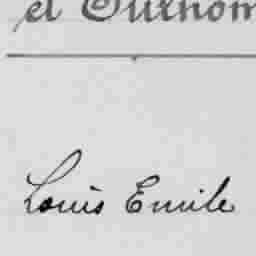 et Surnom
Louis Emile